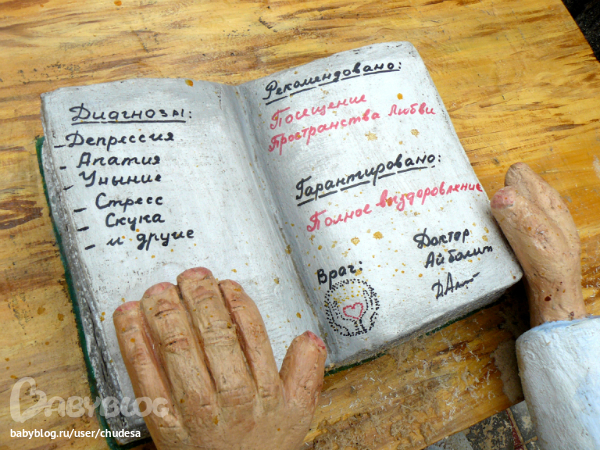 Диагнозы:
- Депрессия
- Апатия
- Уныние
- Стресс
- Скука
- и другие
Рекомендовано:
Посещение
Пространства Любви
Гарантировано:
Полное выздоровление
Врач:
Доктор
Айболит
BABYBLOG
babyblog.ru/user/chudesa